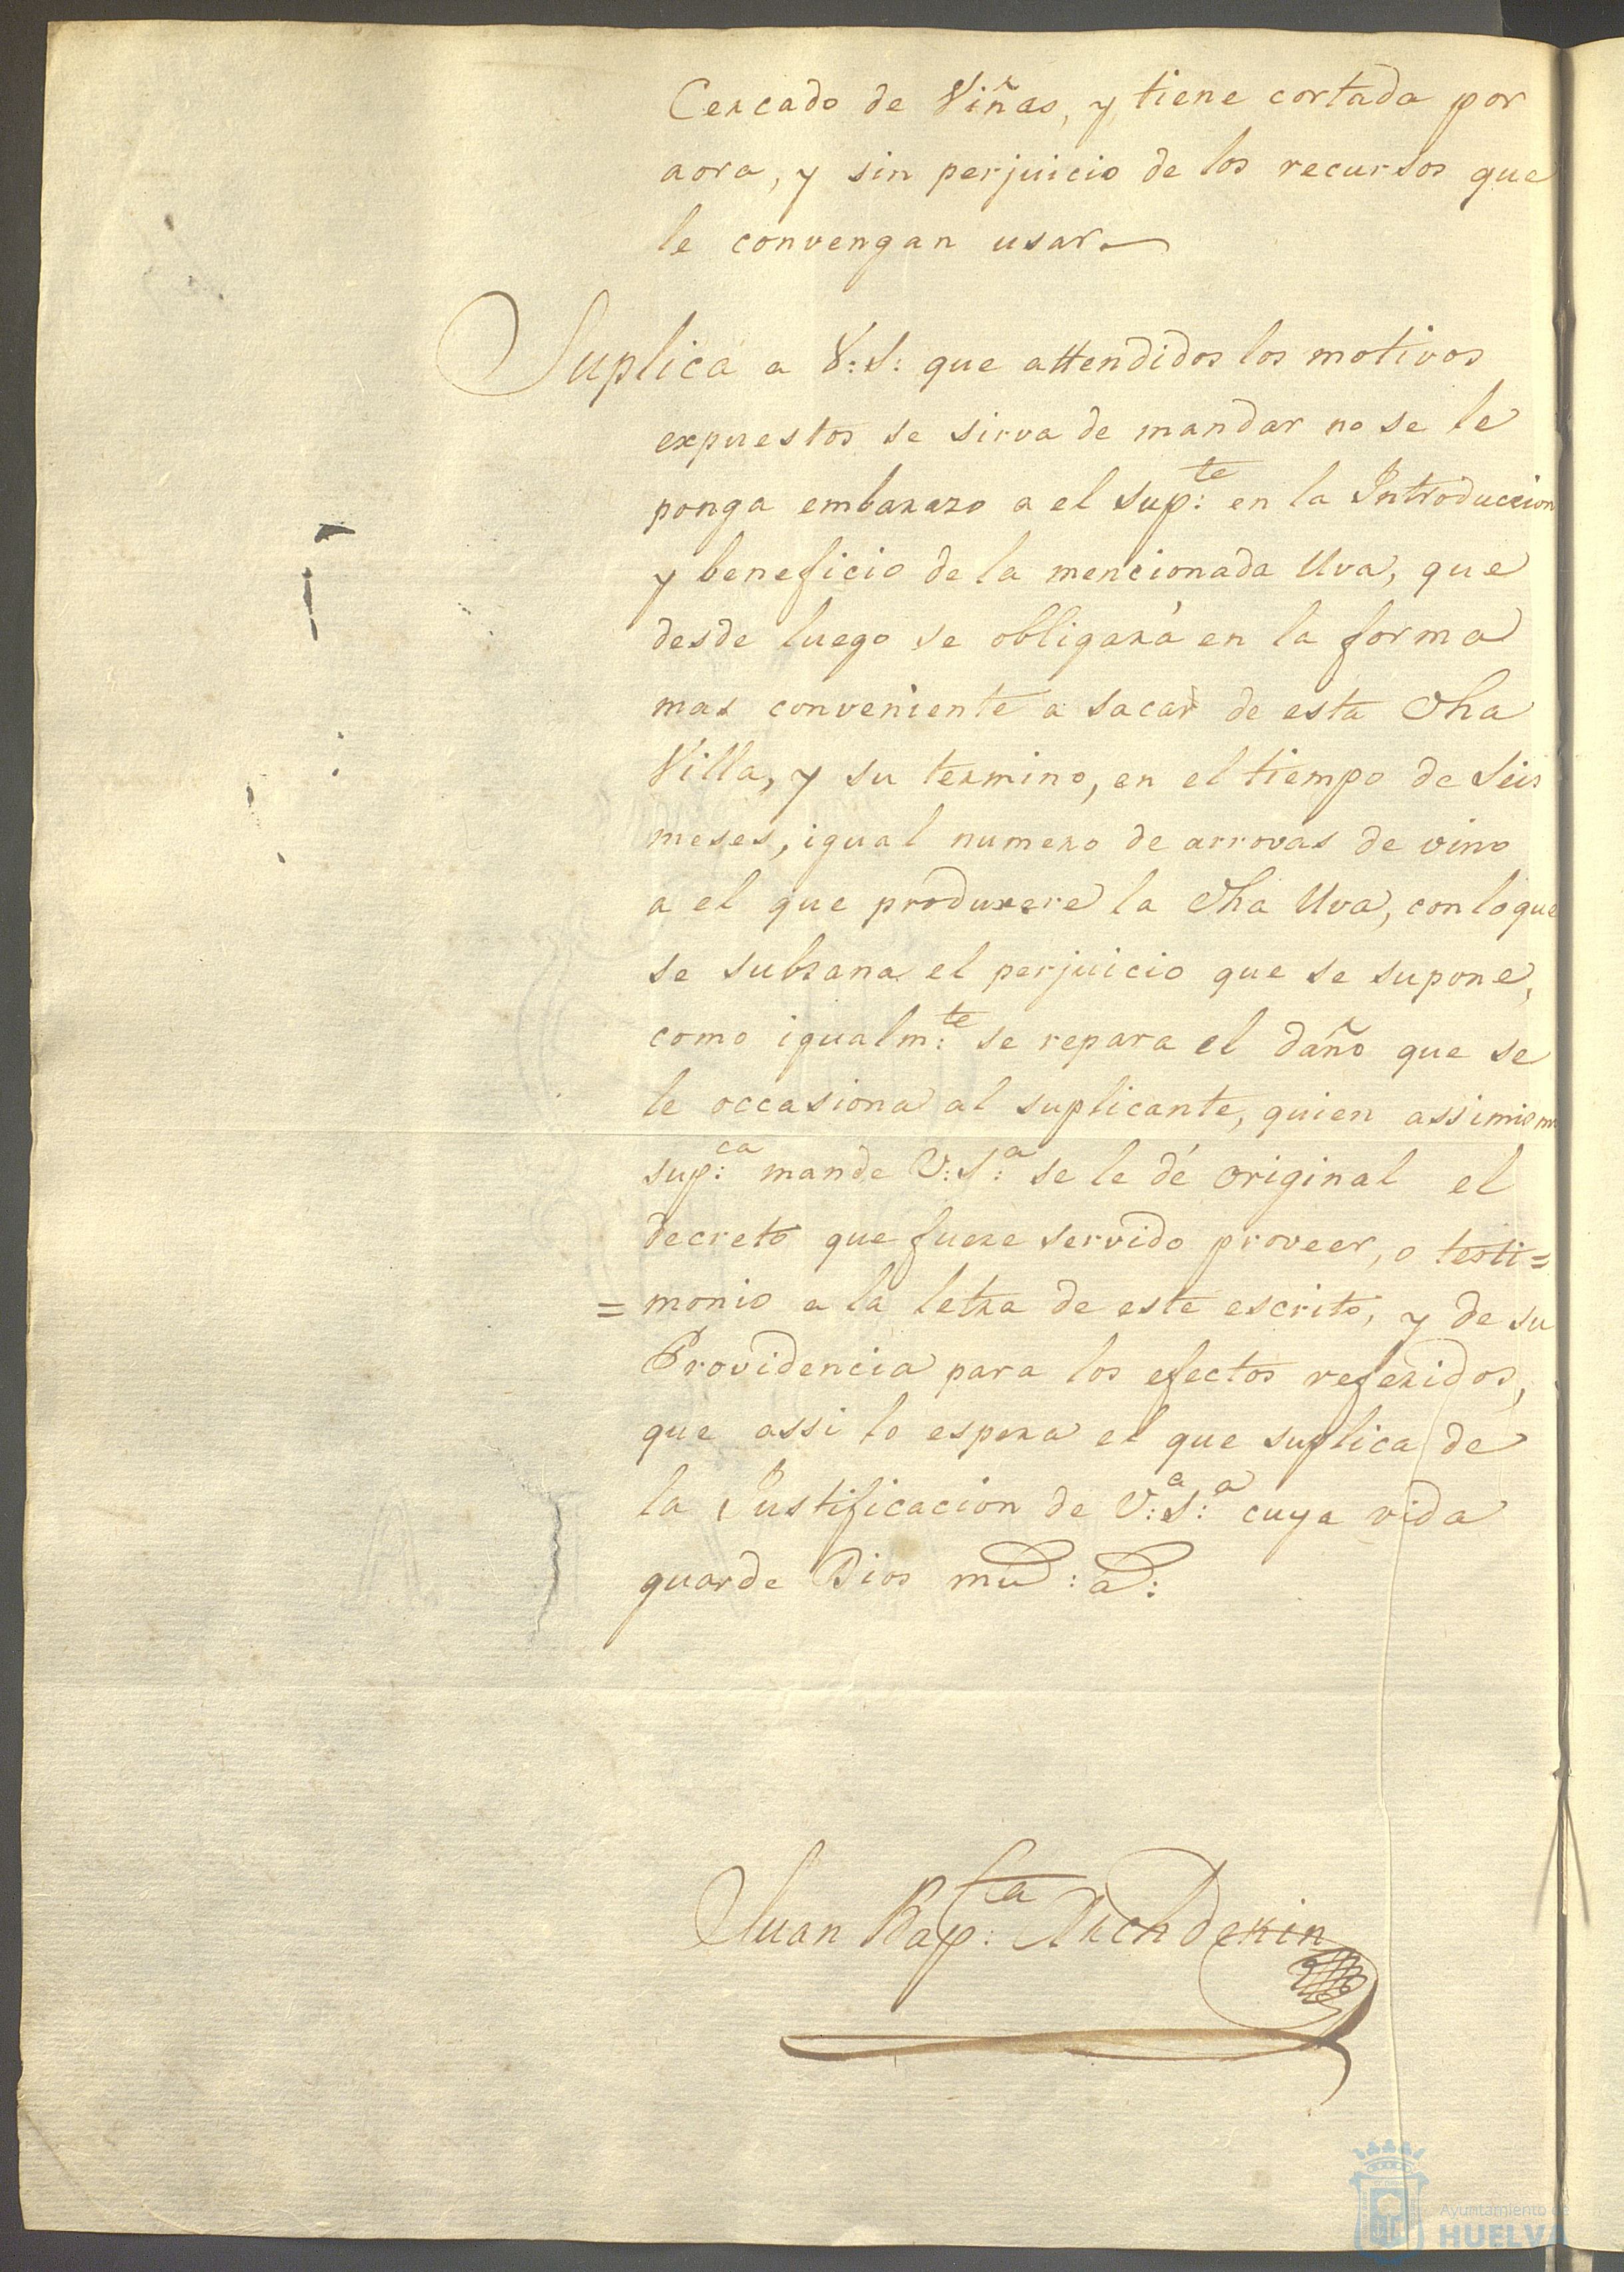 Cercado de Viñas, y tiene cortada por
aora, y sin perjuicio de los recursos que
le convengan usar
Suplica a V:S: que attendidos los motivos
expuestos se sirva de mandar no se le
ponga embarazo a el sup:te en la Introduccion
y beneficio de la mencionada Uva, que
desde luego se obligará en la forma
mas conveniente a sacar de esta dha
Villa, y su termino, en el tiempo de seis
meses, igual numero de arrovas de vino
a el que produxere la dha Uva, con lo que
se subsana el perjuicio que se supone,
como igualm:te se repara el daño que se
le occasiona al suplicante, quien assimism
sup:ca mande V:S:a se le dé original el
decreto que fuere servido proveer, o testi=
=monio a la letra de este escrito, y de su
Providencia para los efectos referidos,
que assi lo espera el que suplica de
la Justificacion de V:a S:a cuya vida
guarde Dios mu: a:
Juan Bap:ta Archdekin
Ayuntamiento de
HUELVA